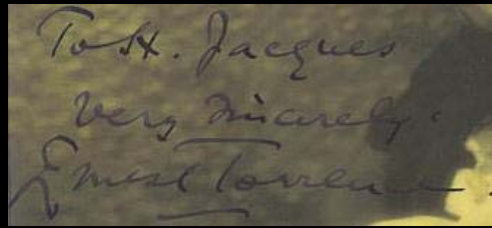 To H. Jacques
Very Sincerely.
Ernest Torrence.